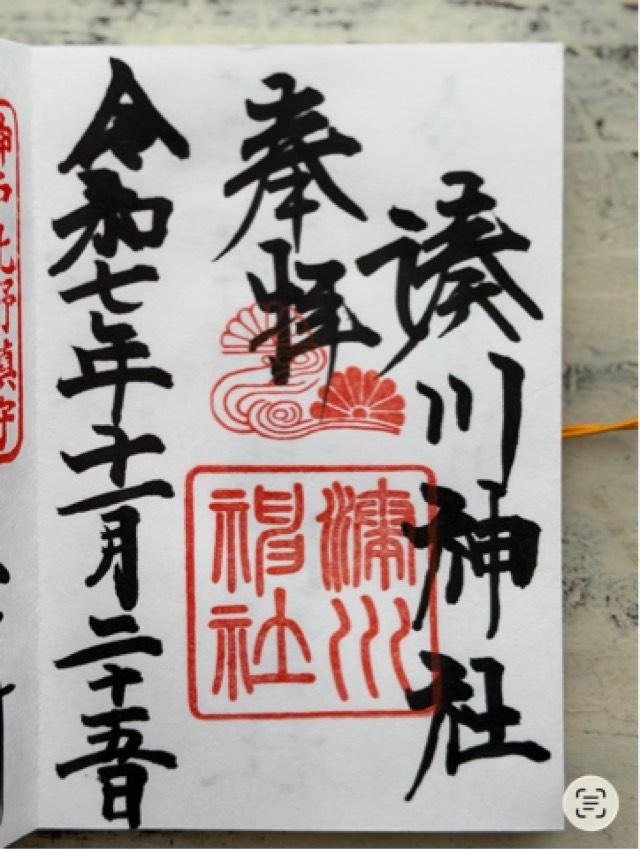 湊川神社
奉拝
湊川
神社
令和七年十一月二十五日
北野鎮守